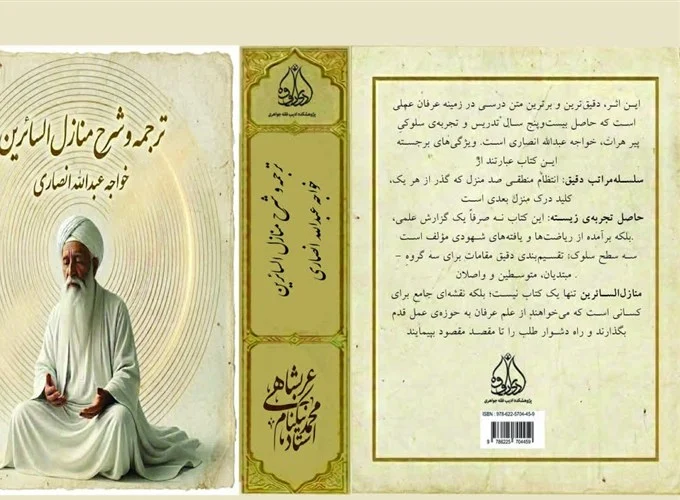 ترجمه و شرح منازل السائرین
خواجه عبدالله انصاری
پژوهشکده ادیب فقه جواهری
ترجمه و شرح منازل السائرین
خواجه عبدالله انصاری
استاد محمد نیکنام عربشاهی
این اثر، دقیق‌ترین و برترین متن درسی در زمینه عرفان عملی
است که حاصل بیست‌وپنج سال تدریس و تجربه‌ی سلوکیِ
پیر هرات، خواجه عبدالله انصاری است. ویژگی‌های برجسته
این کتاب عبارتند از
سلسله‌مراتب دقیق: انتظام منطقی صد منزل که گذر از هر یک،
کلید درک منزل بعدی است
حاصل تجربه‌ی زیسته: این کتاب نه صرفاً یک گزارش علمی،
.بلکه برآمده از ریاضت‌ها و یافته‌های شهودی مؤلف است
سه سطح سلوک: تقسیم‌بندی دقیق مقامات برای سه گروه –
. مبتدیان، متوسطین و واصلان
منازل‌السائرین تنها یک کتاب نیست؛ بلکه نقشه‌ای جامع برای
کسانی است که می‌خواهند از علم عرفان به حوزه‌ی عمل قدم
بگذارند و راه دشوار طلب را تا مقصد مقصود بپیمایند
پژوهشکده ادیب فقه جواهری
ISBN : 978-622-5704-45-9
9 786225 704459